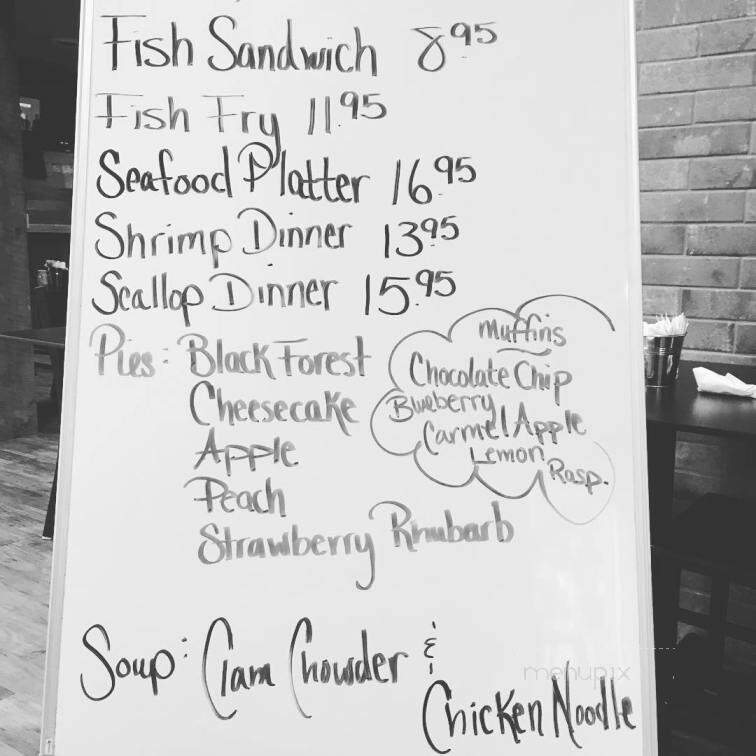 Fish Sandwich 8.95
Fish Fry 11.95
Seafood Platter 16.95
Shrimp Dinner 13.95
Scallop Dinner 15.95
Pies: Black Forest
Cheesecake
Apple
Peach
Strawberry Rhubarb
muffins
Chocolate Chip
Blueberry
Carmel Apple
Lemon
Rasp.
Soup: Clam Chowder &
Chicken Noodle
menupix